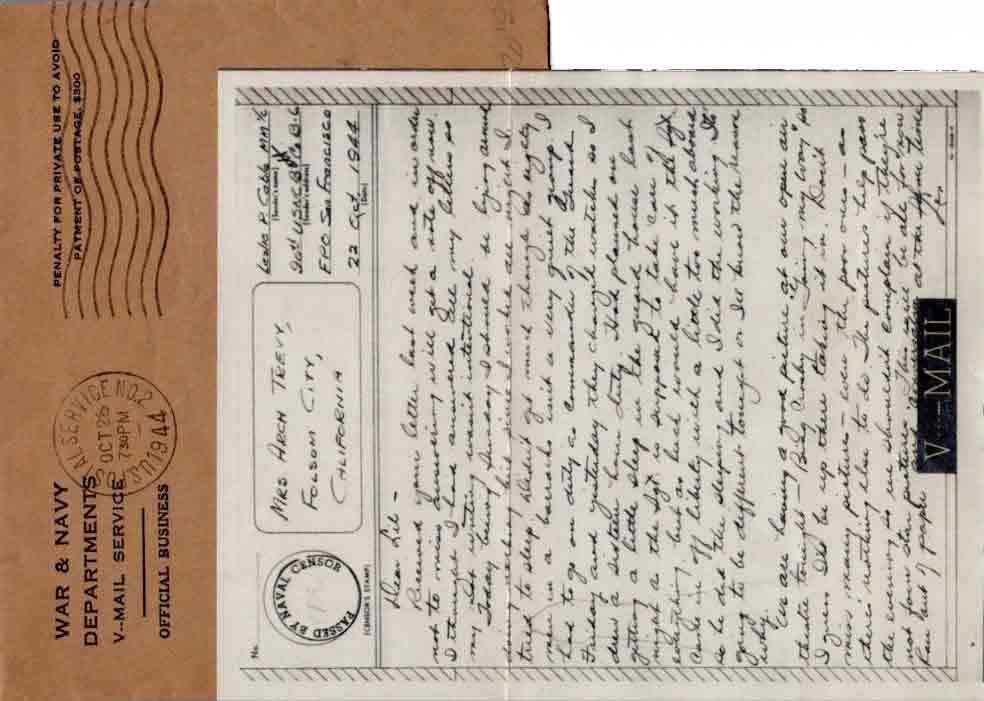 WAR & NAVY
DEPARTMENTS
V--MAIL SERVICE
OFFICIAL BUSINESS
OCT 26
7 30 PM
1944
PENALTY FOR PRIVATE USE TO AVOID
PAYMENT OF POSTAGE, $300
No.
PASSED BY NAVAL CENSOR
(CENSOR'S STAMP)
MRS ARCH TREVY,
FOLSOM CITY,
CALIFORNIA
(Sender's name)
(Sender's address)
FPO San Francisco
22 Oct 1944
(Date)
Dear Lil -
Received your letter last week and in order
not to miss answering will get a note off now.
I thought I had answered all my letters so
my not writing wasn't intentional.
Today being Sunday I should be lying around
doing nothing but since I worked all night I
tried to sleep, didn't get much though. As eighty
men in a barracks isn't a very quiet group. I
had to go on duty as commander of the Guard
Friday and yesterday they changed watches so I
drew a sixteen hour duty. Had planned on
getting a little sleep in the guard house last
night as the Sgt. is supposed to take care of
everything, but as luck would have it the Sgt.
came in off liberty with a little too much aboard
so he did the sleeping and I did the working. Its
going to be different tonight or I'll know the reason
why.
We are having a good picture at our open air
theatre tonight - Bing Crosby in "Going my Way" so
I guess I'll be up there taking it in. Don't
miss many pictures - even the poor ones - as
there's nothing else to do. The pictures help pass
the evening so we shouldn't complain if they're
not four star pictures. This will be all for now
Ran out of paper at the same time
Les
V--MAIL